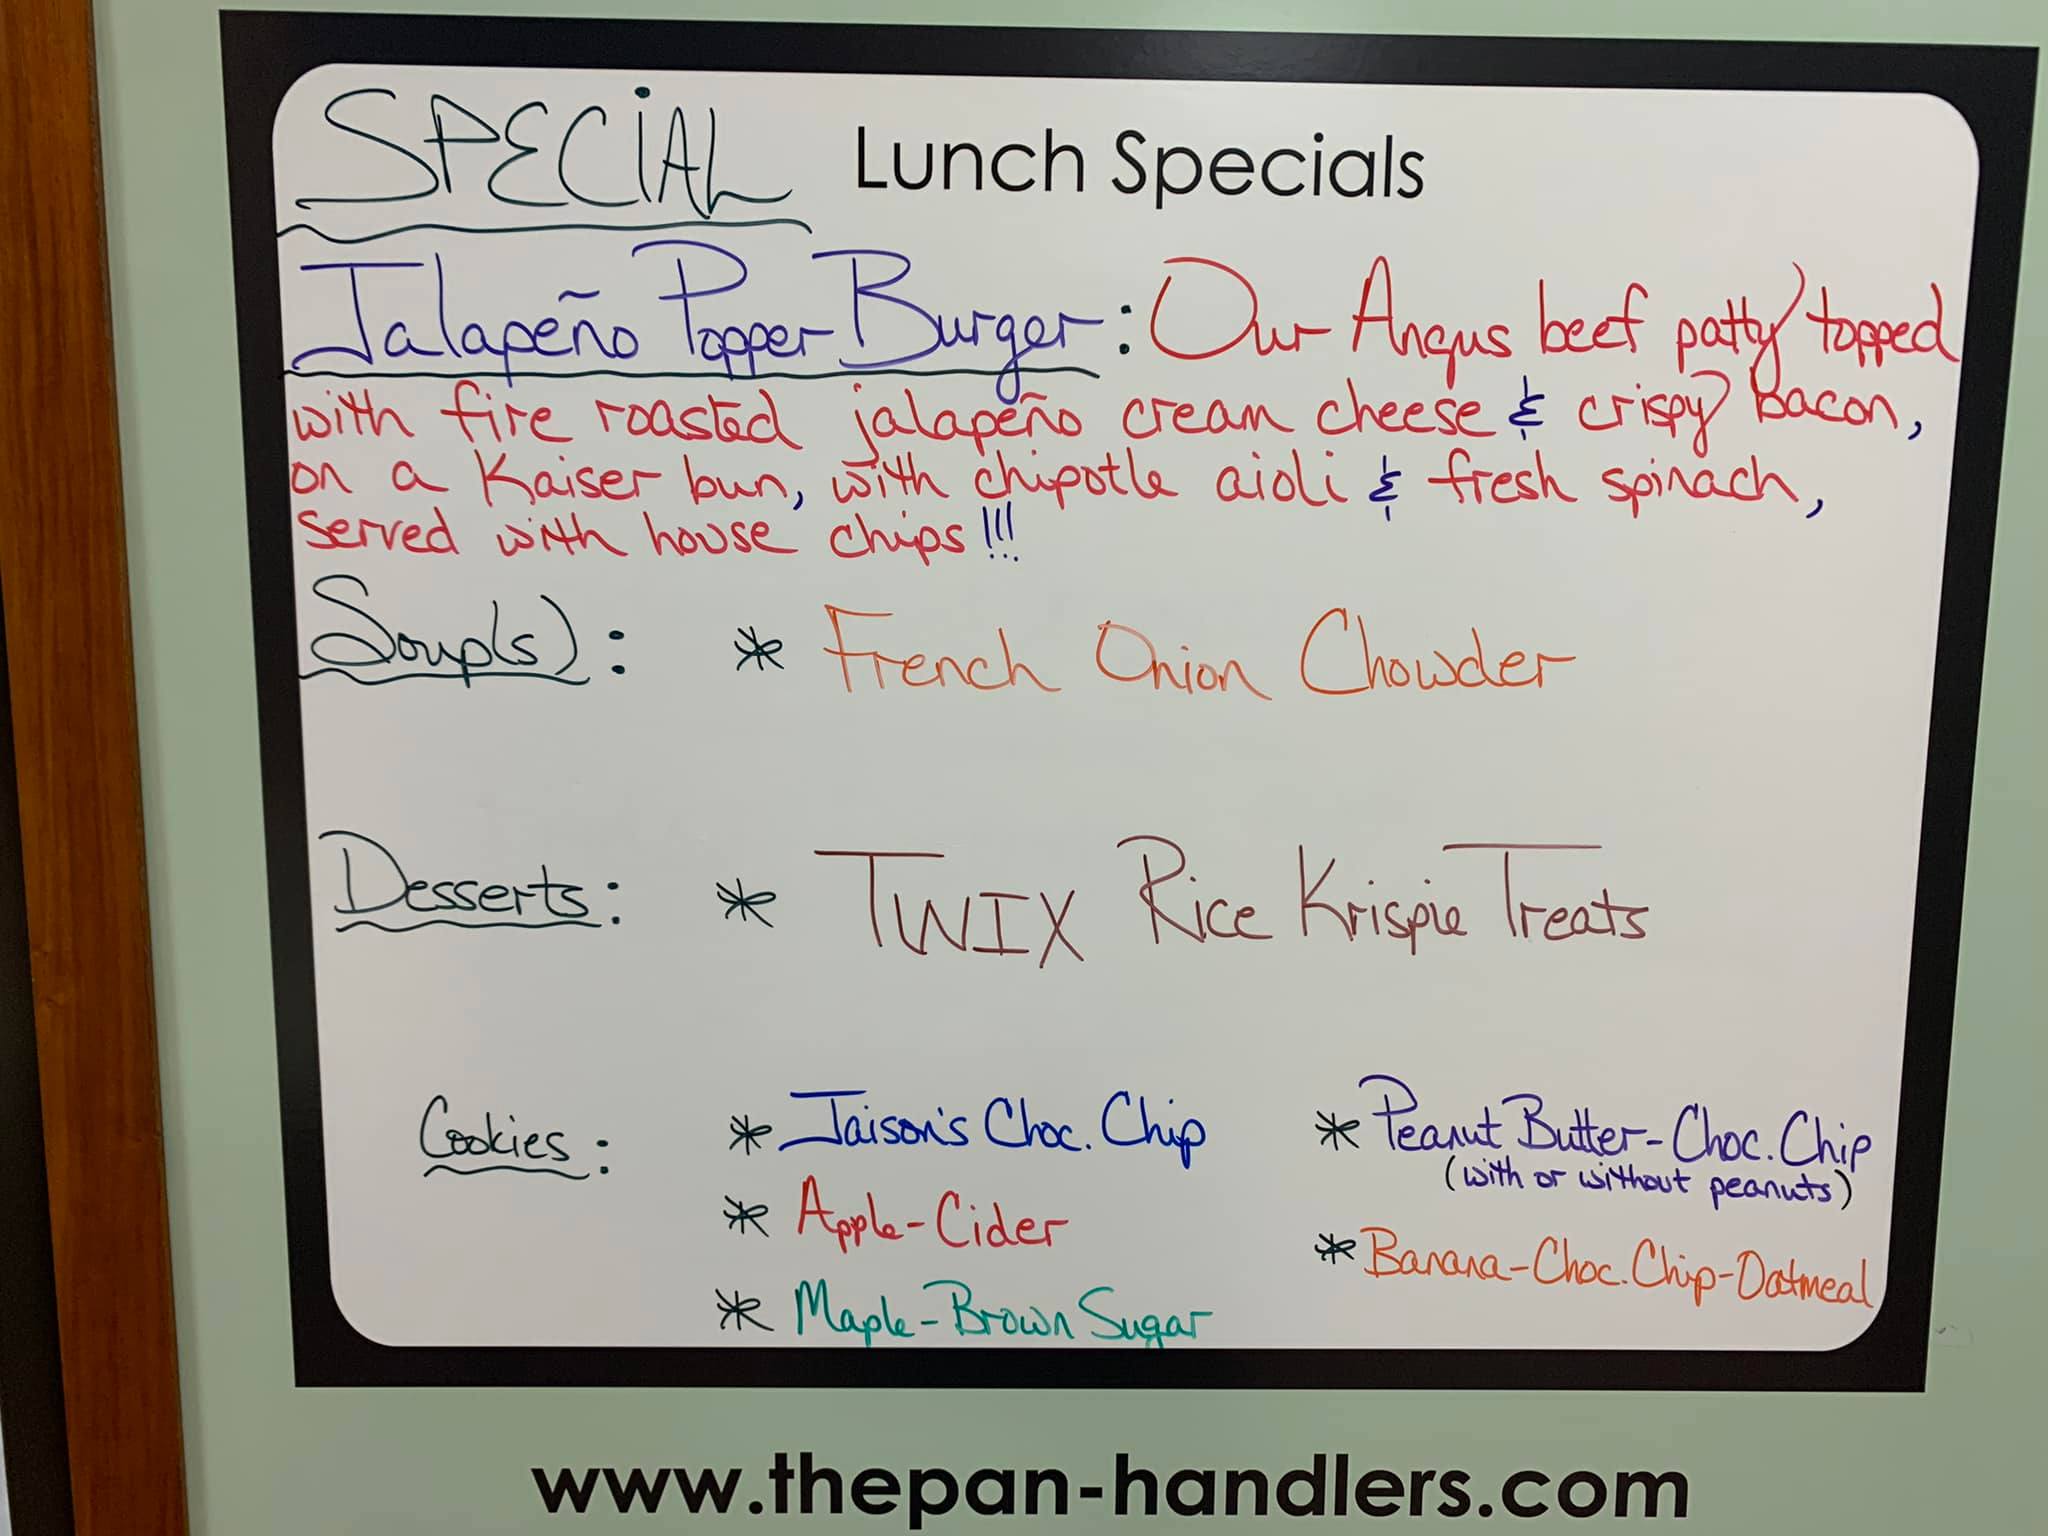 SPECIAL Lunch Specials
Jalapeño Popper Burger: Our Angus beef patty topped
with fire roasted jalapeño cream cheese & crispy bacon,
on a Kaiser bun, with chipotle aioli & fresh spinach,
served with house chips!!!
Soup(s): * French Onion Chowder
Desserts: * TWIX Rice Krispie Treats
Cookies: * Jaison's Choc. Chip * Peanut Butter-Choc. Chip
(with or without peanuts)
* Apple-Cider
* Banana-Choc. Chip-Oatmeal
* Maple-Brown Sugar
www.thepan-handlers.com